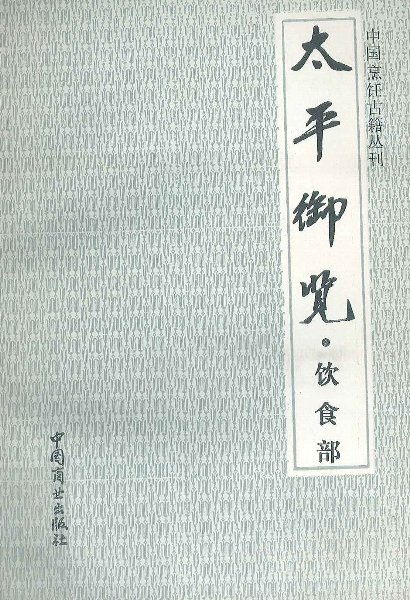 中国烹饪古籍丛刊
太平御览·饮食部
中国商业出版社